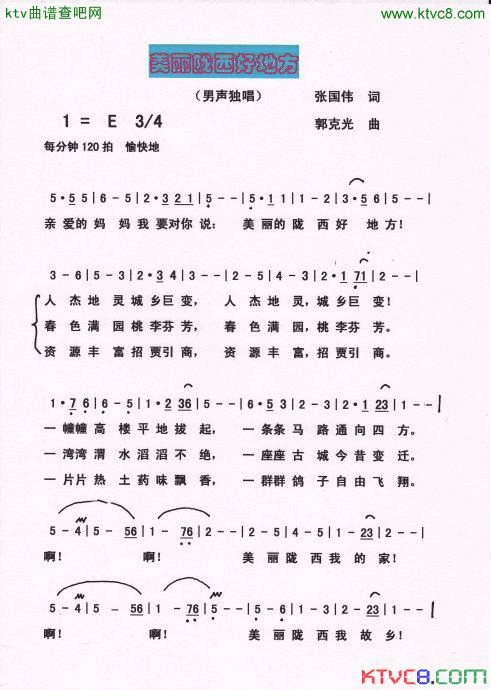 ktv曲谱查吧网
www.ktvc8.com
美丽陇西好地方
（男声独唱） 张国伟 词
1 = E 3/4 郭克光 曲
每分钟120拍 愉快地
5·5 5|6-5|2·3 2 1|5--|5·5 1|1-2|3·5 6 5|5--|
亲爱的妈妈我要对你说： 美丽的陇西好地方！
3-6|5-3|2·3 4|3--|3-6|5-3|2·1 7 1|1--|
人杰地灵城乡巨变， 人杰地灵，城乡巨变！
春色满园桃李芬芳， 春色满园，桃李芬芳。
资源丰富招贾引商， 资源丰富，招贾引商。
1·7 6|6-5|5-4|2·3 6|5--|6·5 3|2-2|2-1 2 3|1--|
一幢幢高楼平地拔起， 一条条马路通向四方。
一湾湾渭水滔滔不绝， 一座座古城今昔变迁。
一片片热土药味飘香， 一群群鸽子自由飞翔。
5-4|5-5 6|1-7 6|2--|2-5|2-4|5-1|1-2 3|2--|
啊！ 啊！ 美丽陇西我的家！
5-4|5-5 6|1-7 6|5--|5-6|1-3|3-2|2-2 3|1--|
啊！ 啊！ 美丽陇西我故乡！
KTVC8.com